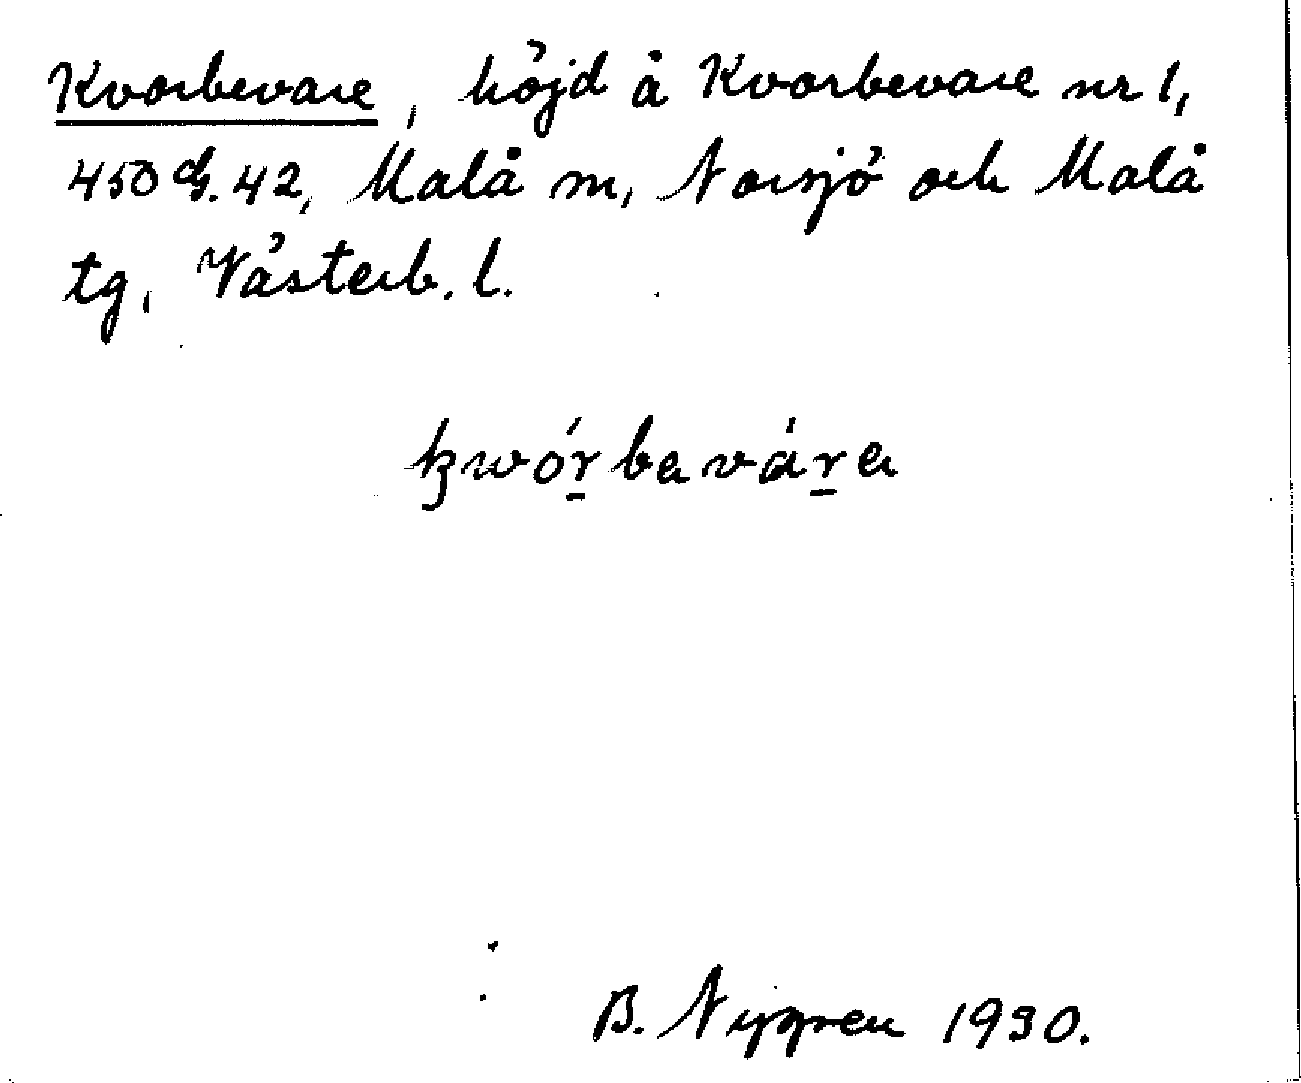 Kvorbevare, höjd å Kvorbevare nr 1,
450 G. 42, Malå sn, Norsjö och Malå
tg, Västerb. l.
kwórbavára
B. Nygren 1930.